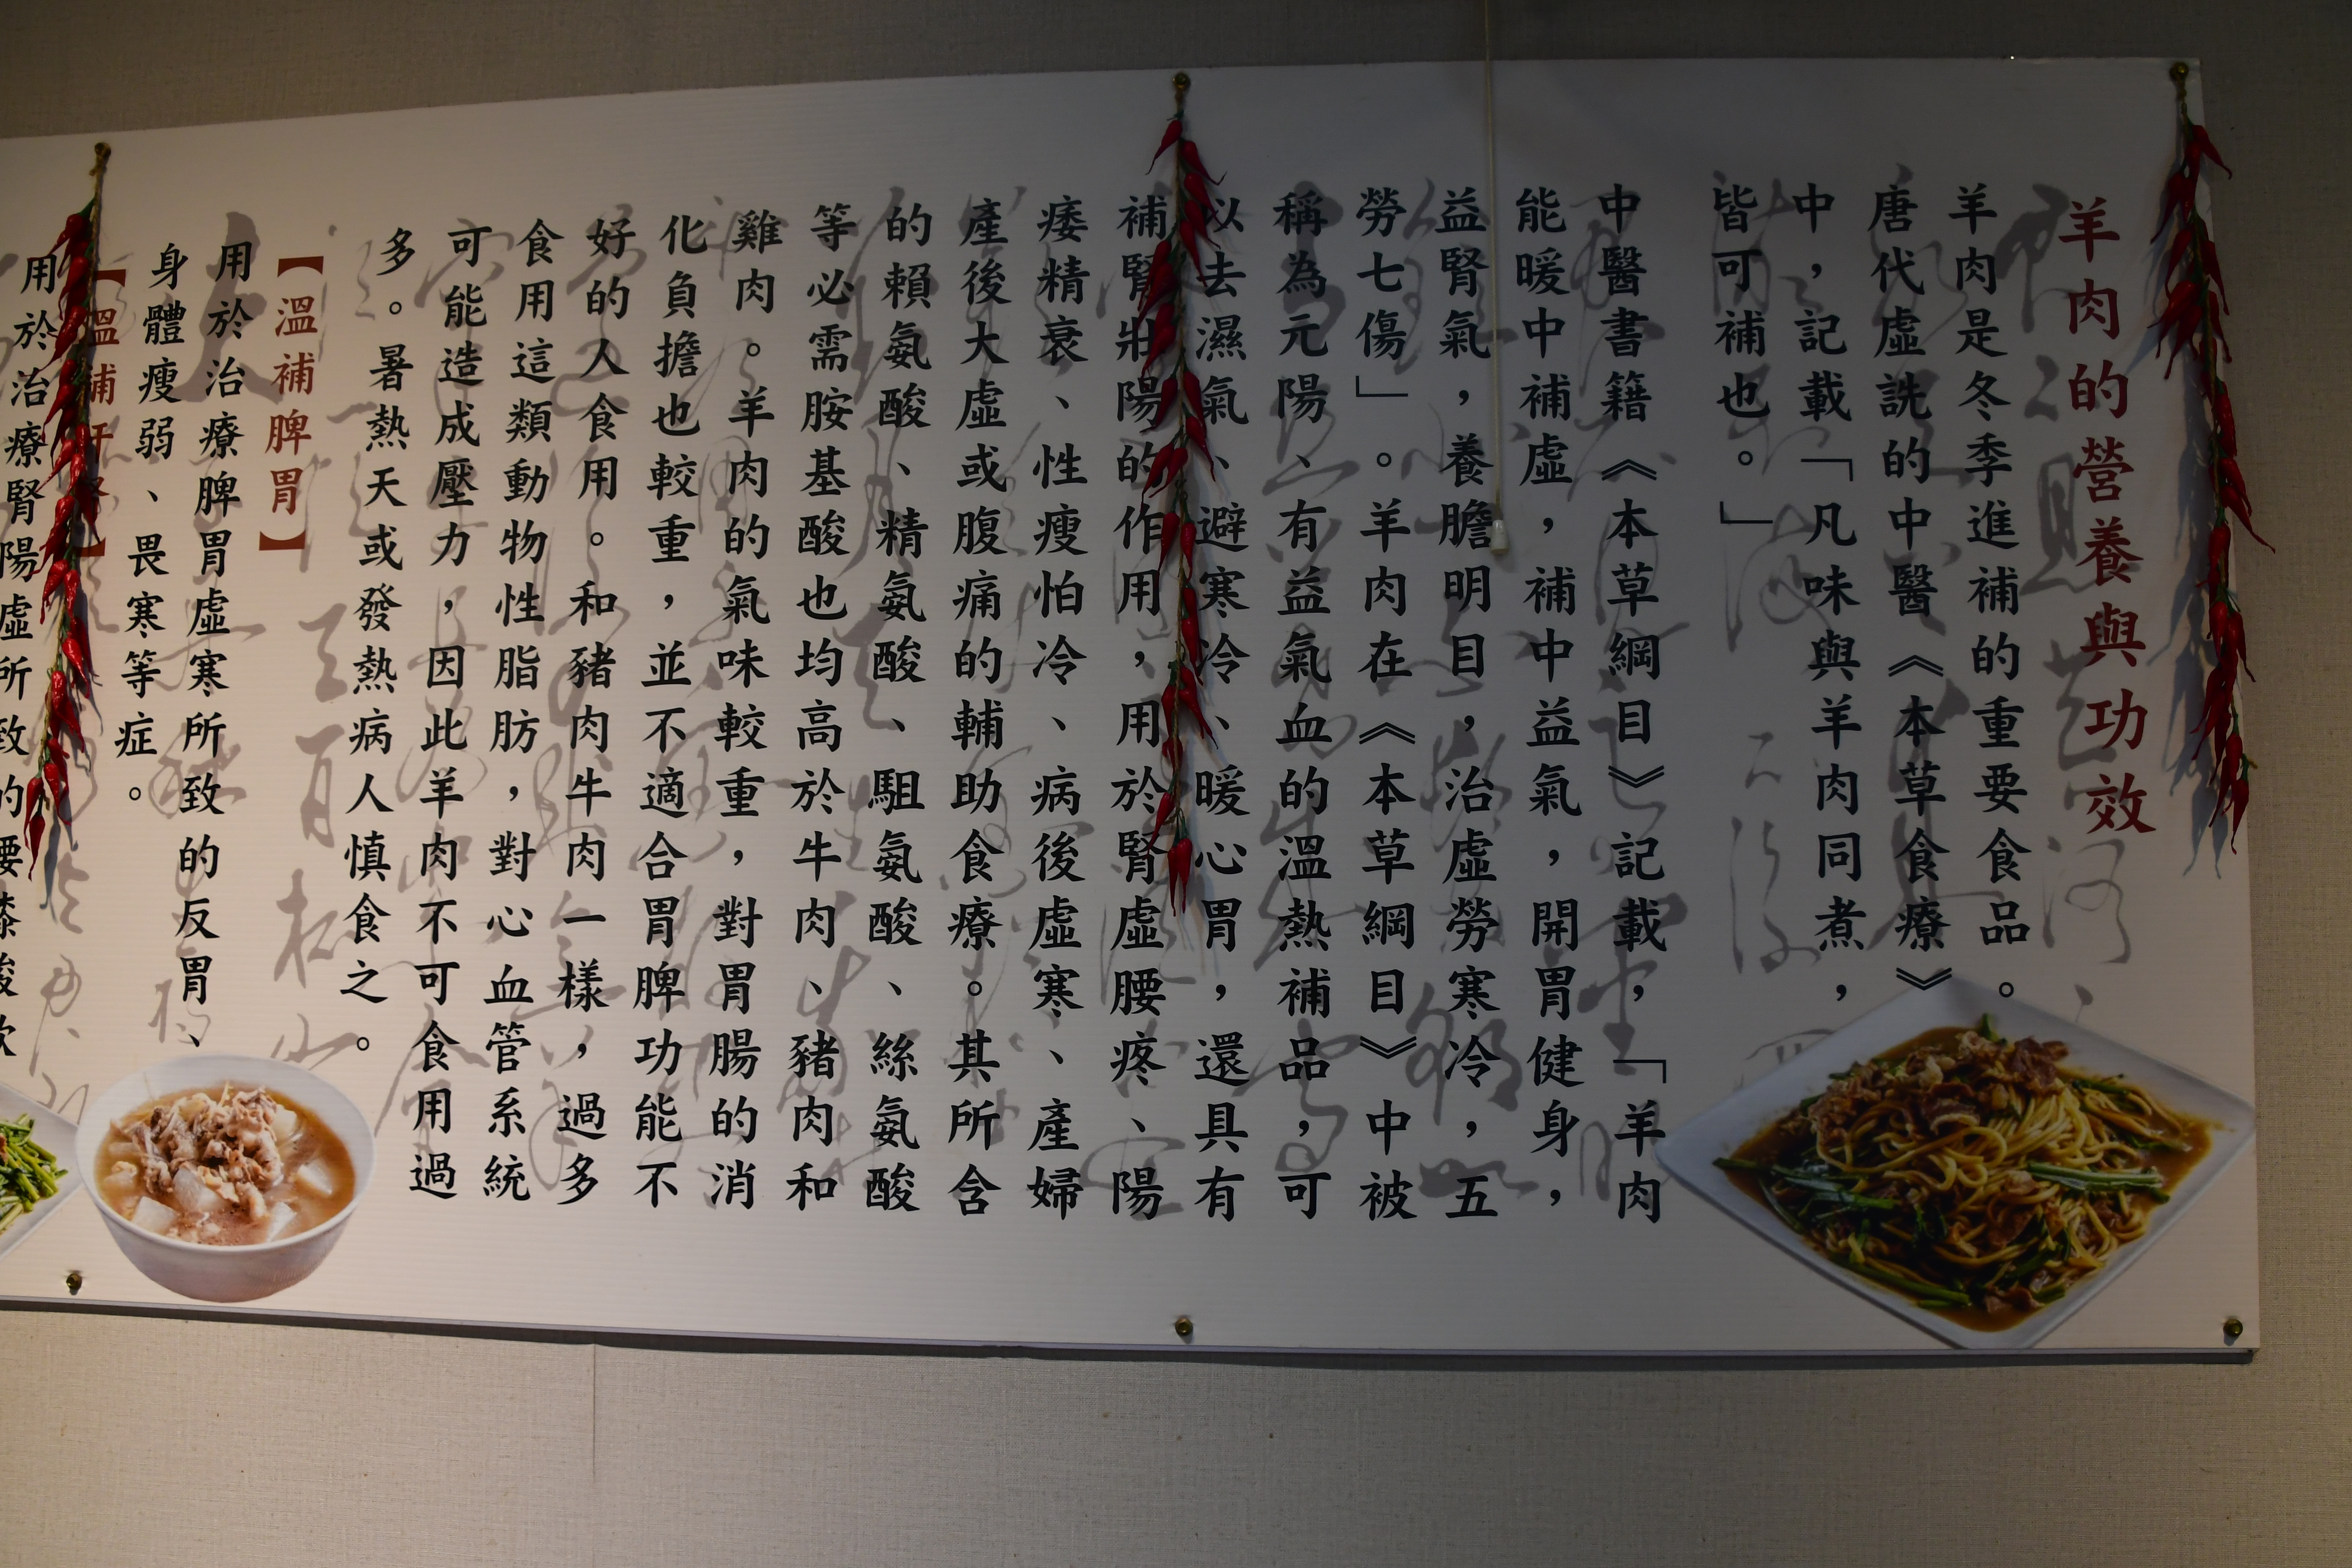 羊肉的營養與功效
羊肉是冬季進補的重要食品。
唐代虛詵的中醫《本草食療》
中，記載「凡味與羊肉同煮，
皆可補也。」
中醫書籍《本草綱目》記載，「羊肉
能暖中補虛，補中益氣，開胃健身，
益腎氣，養膽明目，治虛勞寒冷，五
勞七傷」。羊肉在《本草綱目》中被
稱為元陽、有益氣血的溫熱補品，可
以去濕氣、避寒冷、暖心胃，還具有
補腎壯陽的作用，用於腎虛腰疼、陽
痿精衰、性瘦怕冷、病後虛寒、產婦
產後大虛或腹痛的輔助食療。其所含
的賴氨酸、精氨酸、駔氨酸、絲氨酸
等必需胺基酸也均高於牛肉、豬肉和
雞肉。羊肉的氣味較重，對胃腸的消
化負擔也較重，並不適合胃脾功能不
好的人食用。和豬肉牛肉一樣，過多
食用這類動物性脂肪，對心血管系統
可能造成壓力，因此羊肉不可食用過
多。暑熱天或發熱病人慎食之。
【溫補脾胃】
用於治療脾胃虛寒所致的反胃、
身體瘦弱、畏寒等症。
【溫補肝腎】
用於治療腎陽虛所致的腰膝酸軟